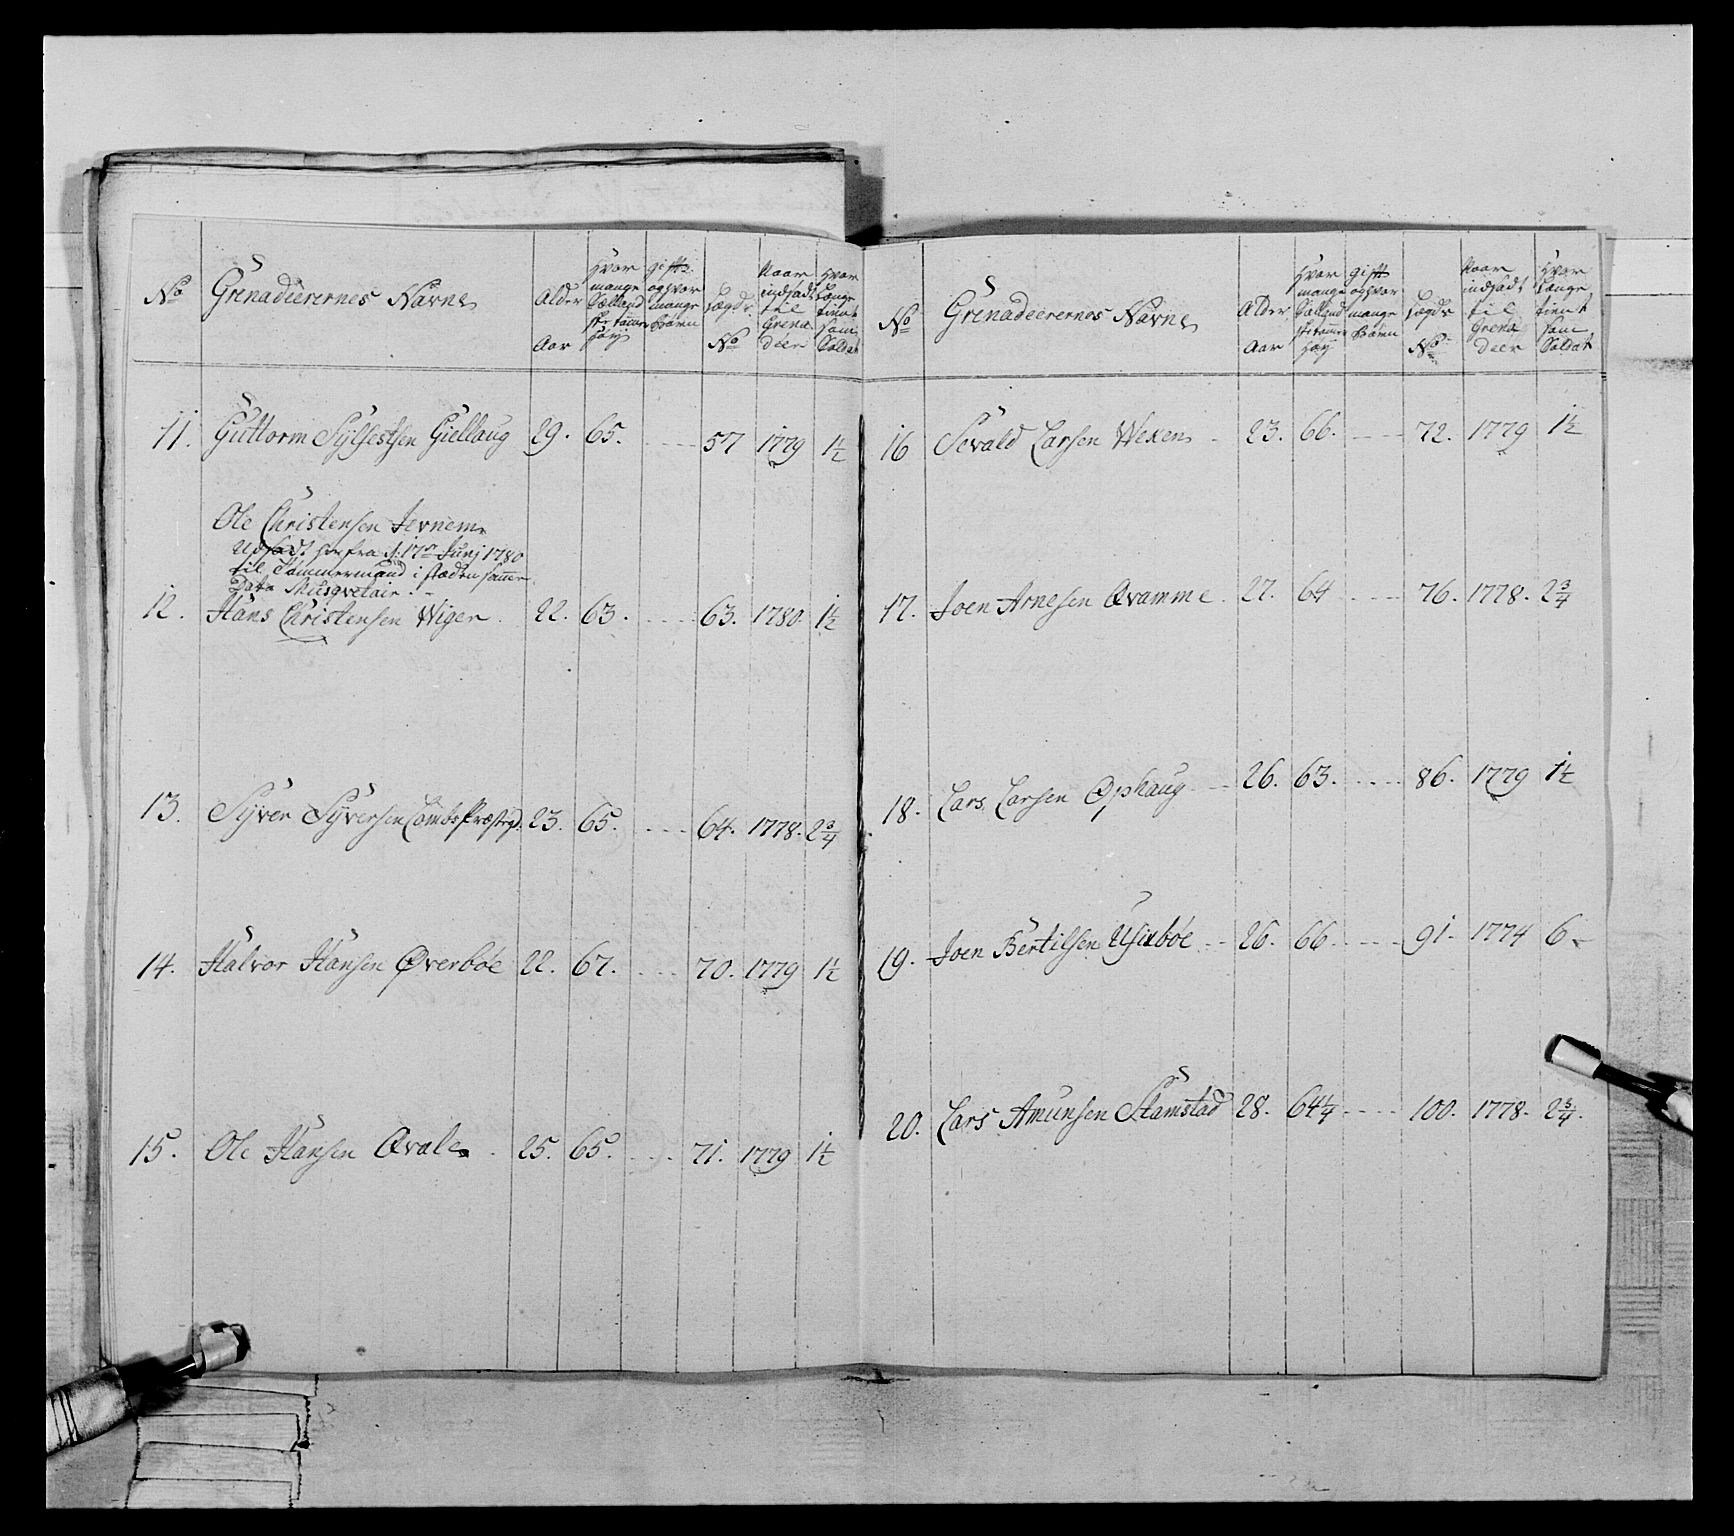 No
Grenadeerernes Navne
Alder
Aar
Hvor mange Siælland ske tommer Høÿ
gift og hvor mange Børn
Lægdr. No
Naar indsadt til Grena deer
Hvor Længe tient som Soldat
11. Guttorm Sylfestsen Giellaug 29. 65. 57 1779 1½
Ole Christensen Jevnem
Udsadt herfra d: 17de Junj 1780
til Tømmermand i stæden samme
Dato Musqvetair
12. Hans Christensen Wiger 22. 63. 63. 1780. 1½
13. Syver Syversen Lombs Præstegd. 23. 65. 64. 1778. 2¾
14. Halvor Hansen Øverbøe 22. 67. 70. 1779 1½
15. Ole Hansen Qvale 25. 65. 71. 1779 1½
No
Grenadeerernes Navne
Alder
Aar
Hvor mange Siælland ske tomme Høÿ
gift og hvor mange Børn
Lægdr No
Naar indsadt til Grena deer
Hvor Længe tient som Soldat
16 Sevald Larsen Wexen 23. 66. 72. 1779 1½
17. Joen Arnesen Qvamme 27. 64 76. 1778. 2¾
18. Lars Larsen Ophaug 26. 63. 86. 1779 1½
19. Joen Bertilsen 26. 66 91. 1774 6
20. Lars Amunsen Stamstad 28. 64¼ 100. 1778. 2¾.